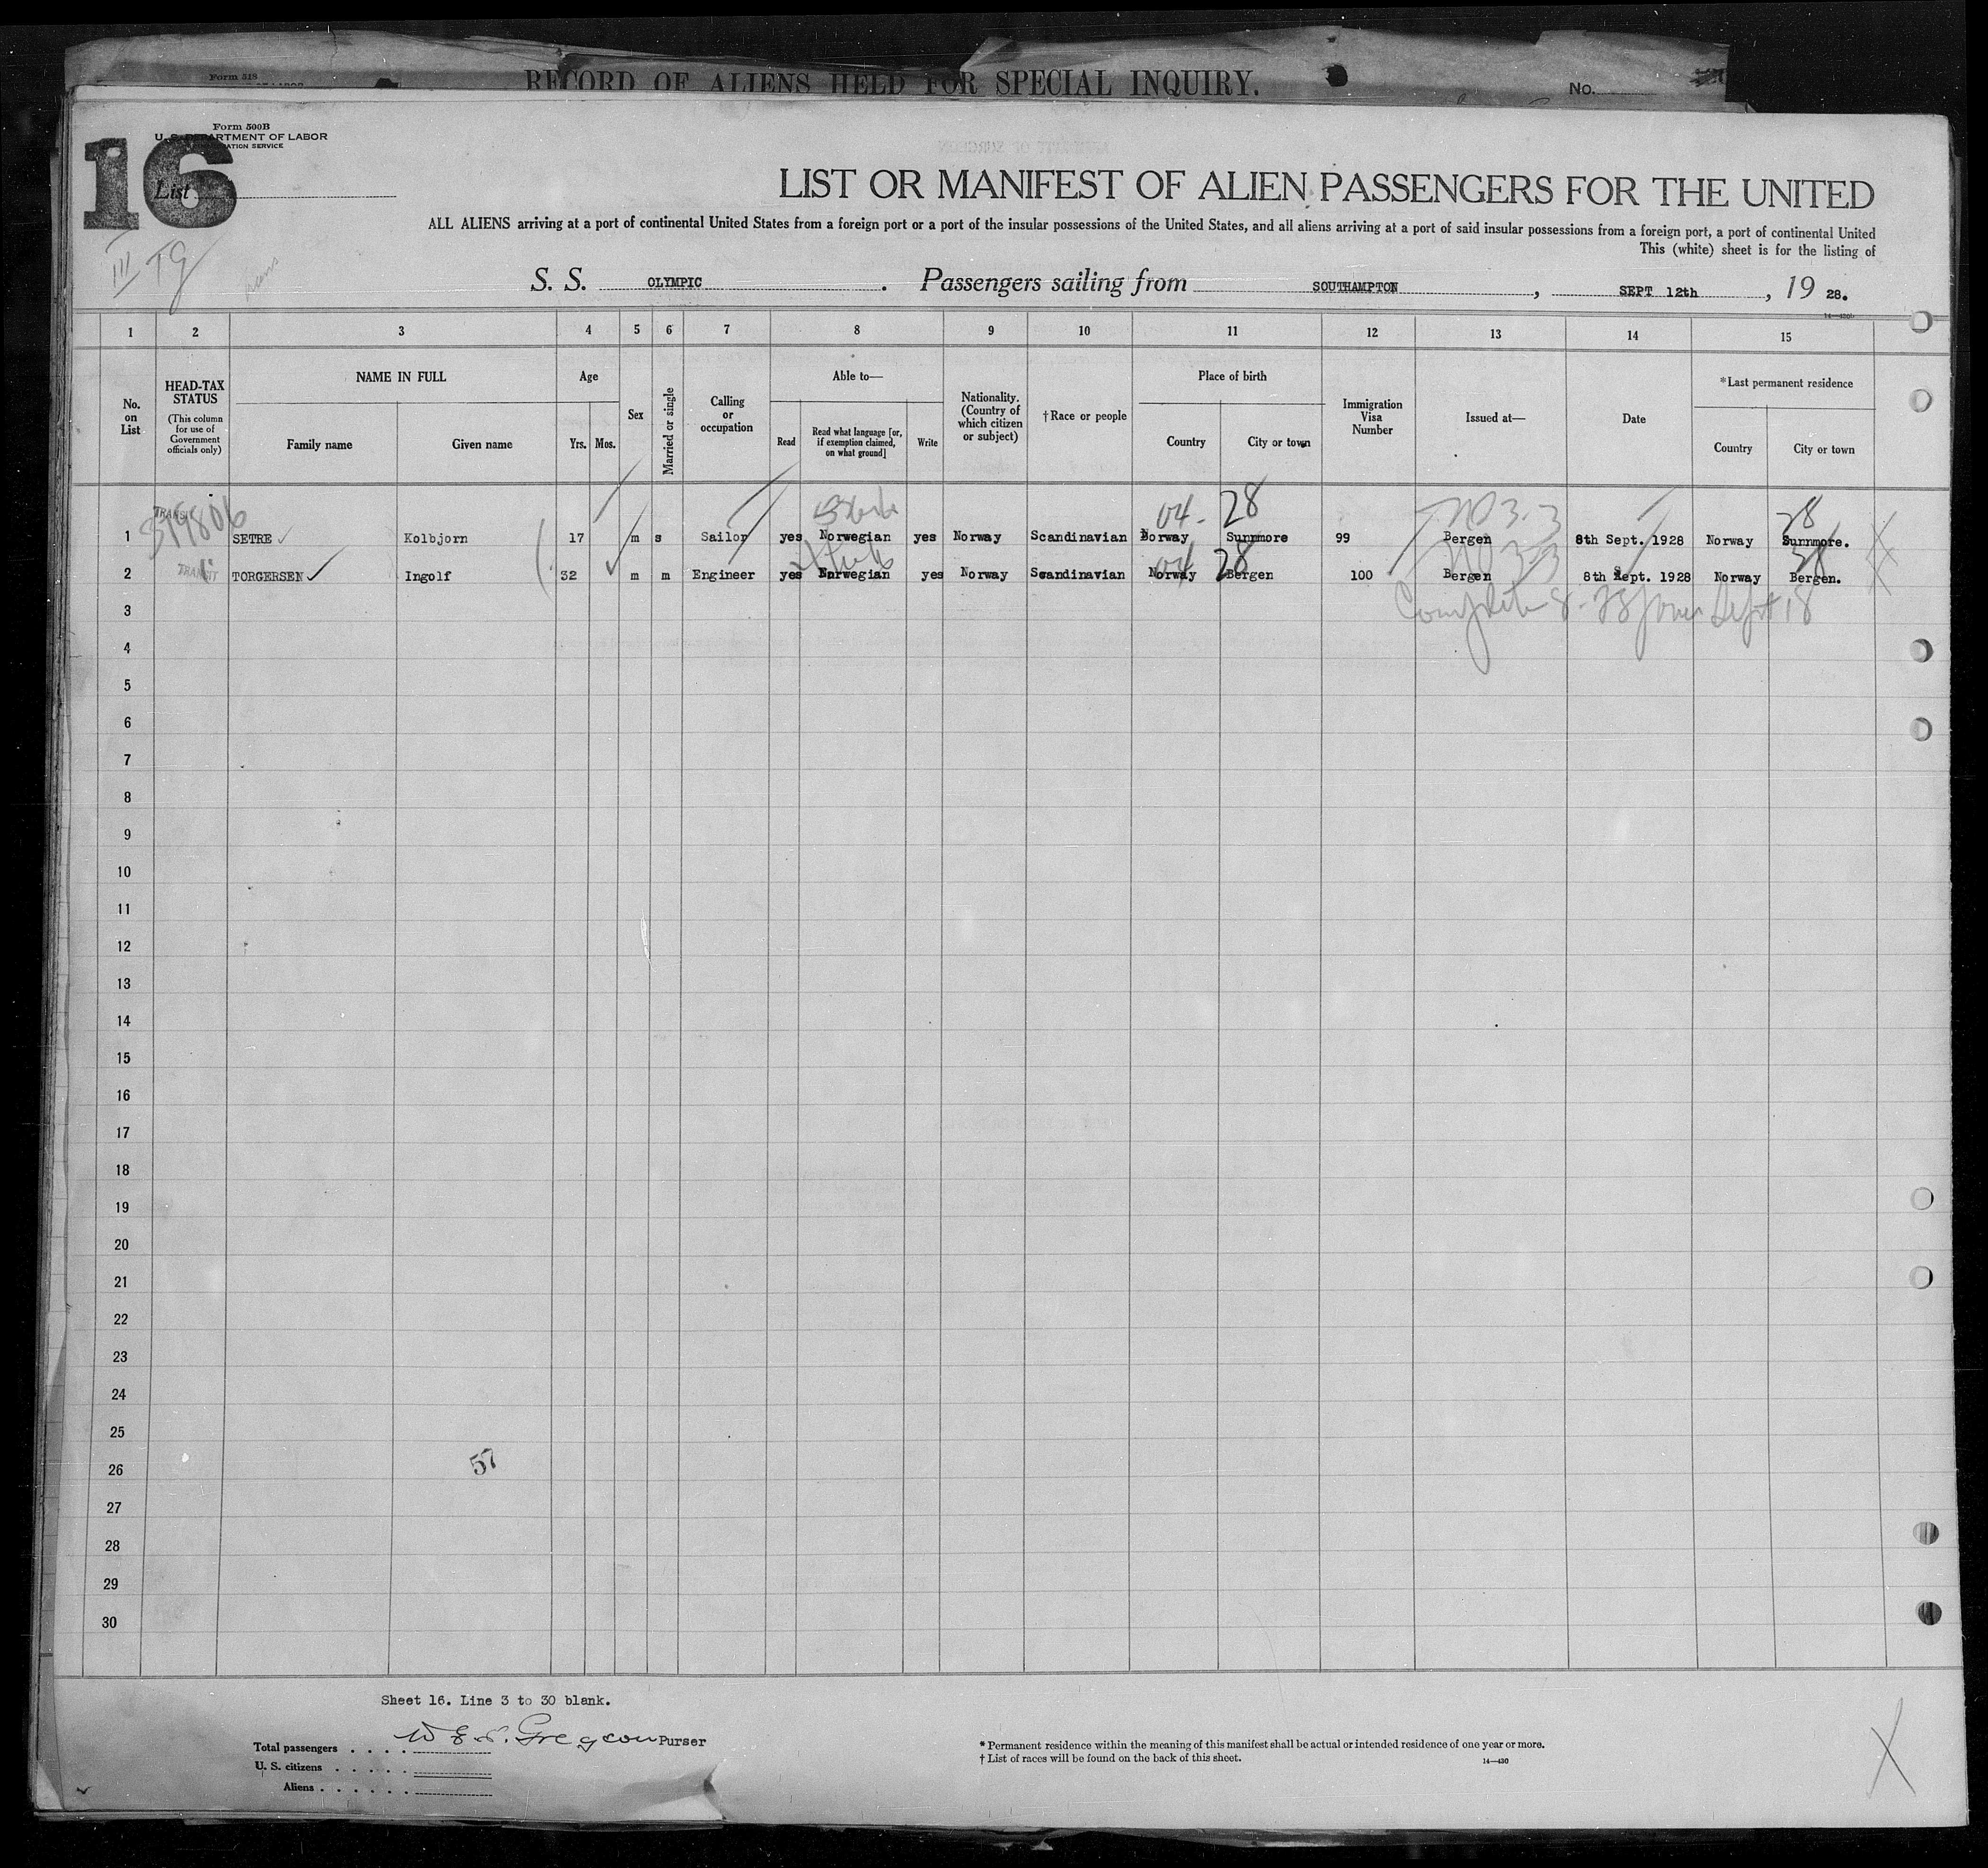 Form 518
RECORD OF ALIENS HELD FOR SPECIAL INQUIRY.
No.
Form 500B
U. S. DEPARTMENT OF LABOR
IMMIGRATION SERVICE
16
List
III TG
LIST OR MANIFEST OF ALIEN PASSENGERS FOR THE UNITED
ALL ALIENS arriving at a port of continental United States from a foreign port or a port of the insular possessions of the United States, and all aliens arriving at a port of said insular possessions from a foreign port, a port of continental United
This (white) sheet is for the listing of
S. S. OLYMPIC . Passengers sailing from SOUTHAMPTON , SEPT 12th , 19 28.
1 2 3 4 5 6 7 8 9 10 11 12 13 14 15
No. on List
HEAD-TAX STATUS
(This column for use of Government officials only)
NAME IN FULL
Family name Given name
Age
Yrs. Mos.
Sex
Married or single
Calling or occupation
Able to—
Read
Read what language [or, if exemption claimed, on what ground]
Write
Nationality. (Country of which citizen or subject)
†Race or people
Place of birth
Country City or town
Immigration Visa Number
Issued at—
Date
*Last permanent residence
Country City or town
319806 04. 28 NO 3-3 28
1 TRANSIT SETRE Kolbjorn 17 m s Sailor yes Norwegian yes Norway Scandinavian Norway Sunnmore 99 Bergen 8th Sept. 1928 Norway Sunnmore.
04 28 NO 3-3 28
2 TRANSIT TORGERSEN Ingolf 32 m m Engineer yes Norwegian yes Norway Scandinavian Norway Bergen 100 Bergen 8th Sept. 1928 Norway Bergen.
3
4
5
6
7
8
9
10
11
12
13
14
15
16
17
18
19
20
21
22
23
24
25
26 57
27
28
29
30
Sheet 16. Line 3 to 30 blank.
Purser
Total passengers . . . .
U. S. citizens . . . . .
Aliens . . . . . .
* Permanent residence within the meaning of this manifest shall be actual or intended residence of one year or more.
† List of races will be found on the back of this sheet. 14—430